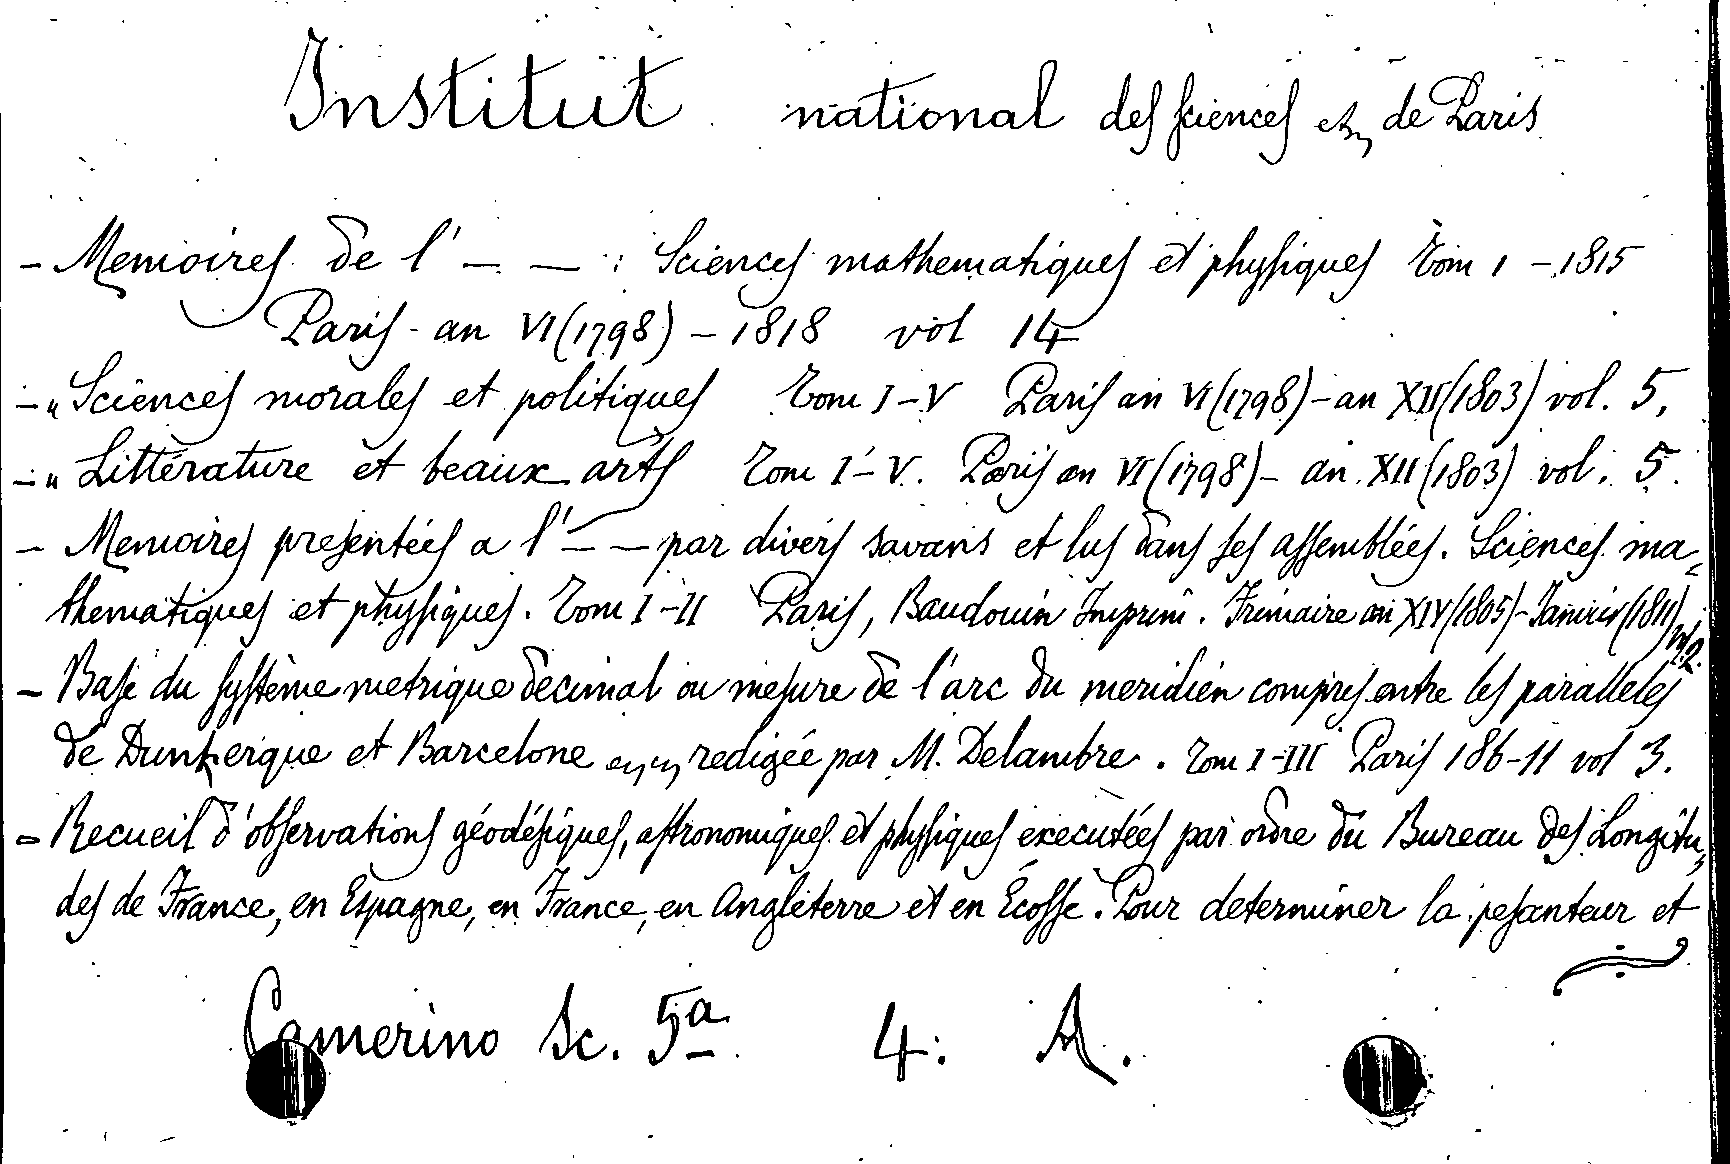 Institut national des sciences etc, de Paris
- Memoires de l' — — : Sciences mathematiques et physiques Tom 1 - 1815
Paris - an VI (1798) - 1818 vol 14
- „ Sciences morales et politiques Tom I - V Paris an VI (1798) - an XII (1803) vol. 5,
- „ Littérature et beaux arts Tom I - V. Paris an VI (1798) - an XII (1803) vol. 5.
- Memoires presentées a l' — — par divers savans et lus dans ses assemblées. Sciences ma-
thematiques et physiques. Tom I - II Paris, Baudouin Imprim. Frimaire an XIV (1805) - Janvier (1811) vol. 2.
- Base du système metrique decimal ou mesure de l'arc du meridien compris entre les paralleles
de Dunkerque et Barcelone redigée par M. Delambre. Tom I - III Paris 186-11 vol 3.
- Recueil d'observations géodésiques, astronomiques et physiques executées par ordre du Bureau des Longitu-
des de France, en Espagne, en France, en Angleterre et en Écosse. Pour determiner la pesanteur et
Camerino Sc. 5a 4. A.